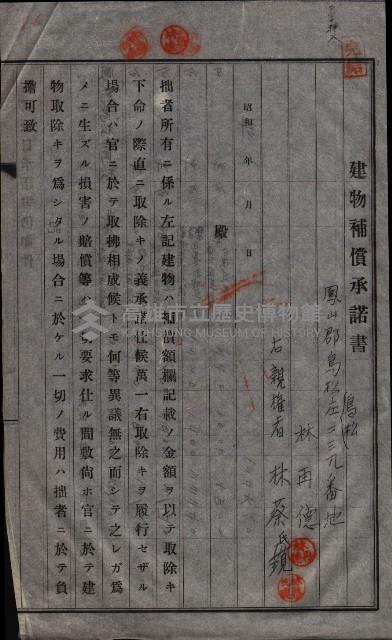 建物補償承諾書
鳳山郡鳥松庄鳥松二三九番地
林再億
右親權者 林蔡氏鏡
昭和 年 月 日
殿
拙者所有ニ係ル左記建物ハ補償額欄記載ノ金額ヲ以テ取除キ
下命ノ際直ニ取除キノ義承諾仕候萬一右取除キヲ履行セザル
場合ハ官ニ於テ取拂相成候トモ何等異議無之而シテ之レガ爲
メニ生ズル損害ノ賠償等ハ一切要求仕ル間敷尚ホ官ニ於テ建
物取除キヲ爲シタル場合ニ於ケル一切ノ費用ハ拙者ニ於テ負
擔可致
高雄市立歷史博物館